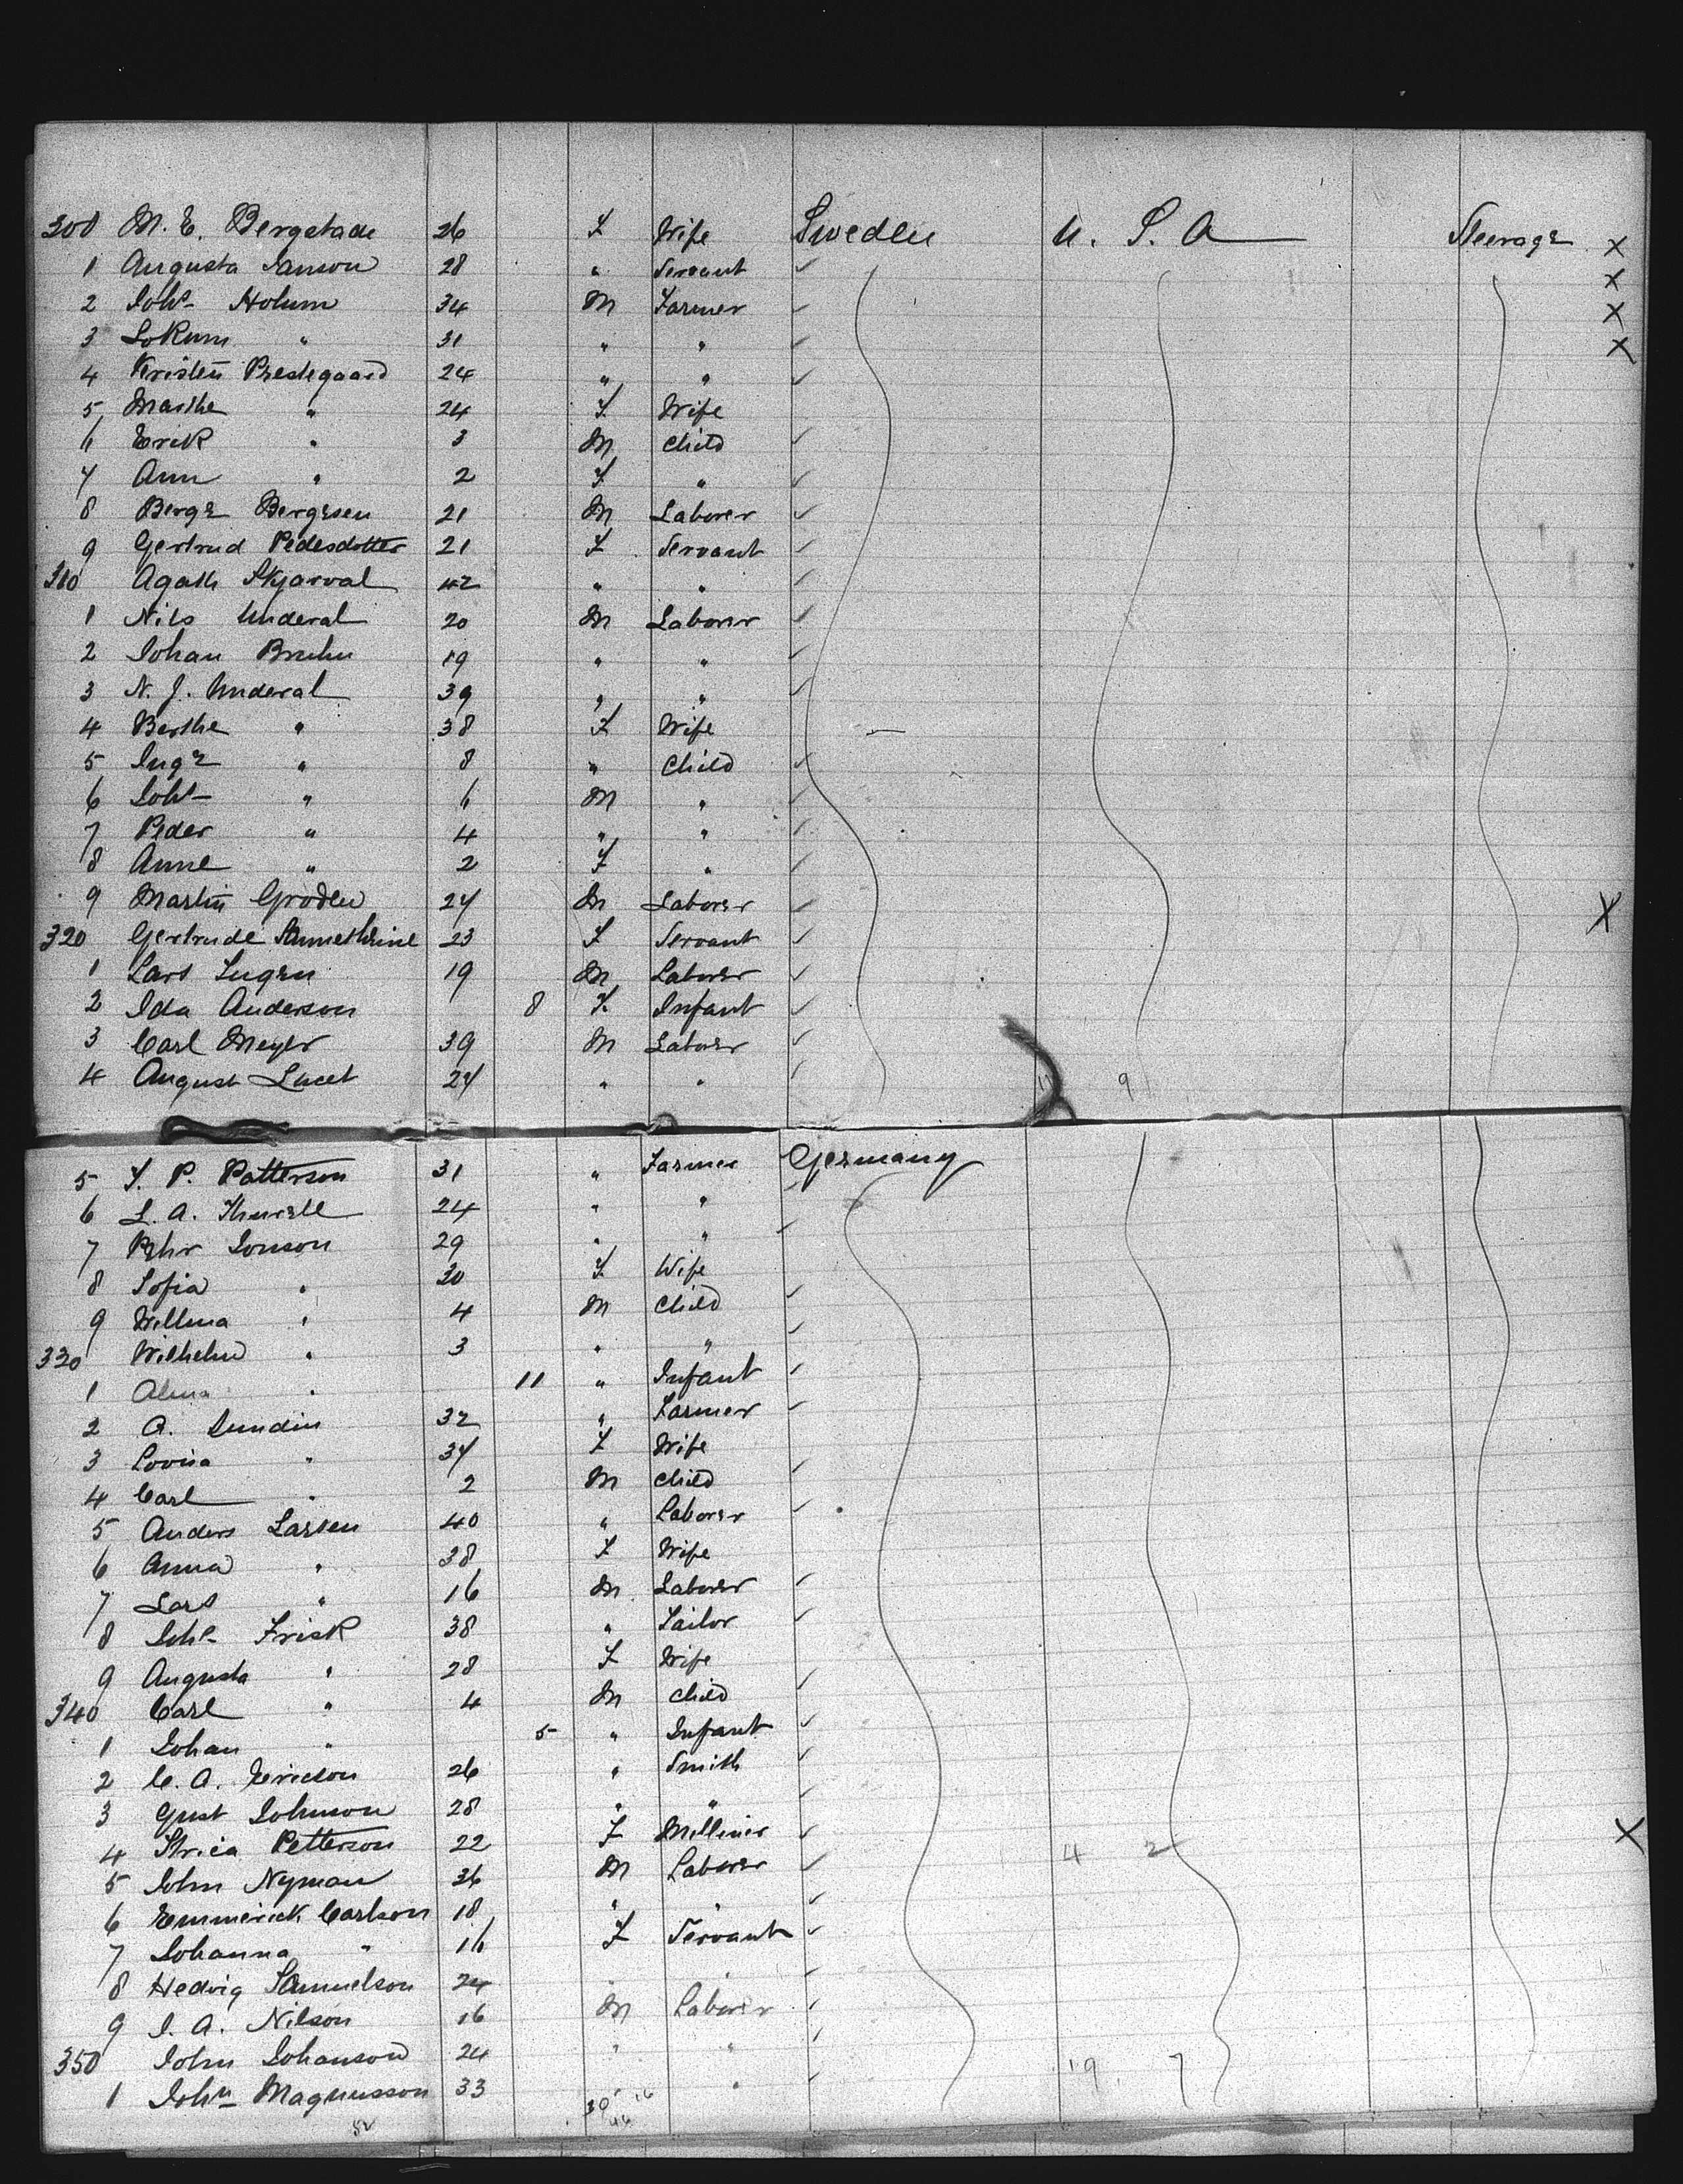 300 M. E. Bergstade 26 F Wife Sweden U. S. A Steerage X
1 Augusta Janson 28 " Servant ✓ X
2 Johs Holum 34 M Farmer ✓ X
3 " 31 " " ✓ X
4 Kristen Prestegaard 24 " " ✓
5 Marthe " 24 F Wife
6 Erik " 3 M Child ✓
7 Ann " 2 F " ✓
8 Berge Bergesen 21 M Laborer ✓
9 Gertrud Pedesdotter 21 F Servant ✓
310 Agath Skjarval 42 " " ✓
1 Nils Underal 20 M Laborer ✓
2 Johan Bruhn 19 " " ✓
3 N. J. Underal 39 " " ✓
4 Berthe " 38 F Wife –
5 Inge " 8 " Child ✓
6 Johs " 6 M " ✓
7 Peder " 4 " " ✓
8 Anne " 2 F " ✓
9 Martin Groden 24 M Laborer ✓ X
320 Gertrude 23 F Servant ✓
1 Lars 19 M Laborer ✓
2 Ida Anderson 8 F. Infant ✓
3 Carl Meyer 39 M Laborer ✓
4 August 24 " " ✓ 9
5 F. P. Patterson 31 " Farmer Germany
6 L. A. 24 " " ✓
7 Pehr Jonson 29 " " ✓
8 Sofia " 30 F Wife
9 Willma " 4 M Child ✓
330 Wilhelm " 3 " " ✓
1 Alma " 11 " Infant ✓
2 A. Lundin 32 " Farmer ✓
3 Lovisa " 34 F Wife
4 Carl " 2 M Child ✓
5 Anders Larsen 40 " Laborer ✓
6 Anna " 38 F Wife
7 Lars " 16 M Laborer ✓
8 Joh Frisk 38 " Tailor ✓
9 Augusta " 28 F Wife
340 Carl " 4 M Child ✓
1 Johan " 5 " Infant ✓
2 C. A. Ericson 26 " Smith ✓
3 Gust Johnson 28 " " ✓
4 Petterson 22 F Milliner ✓ 4 2 X
5 John Nyman 36 M Laborer ✓
6 Emmerick Carlson 18 " " ✓
7 Johanna " 16 F Servant ✓
8 Hedvig Samuelson 24 " " ✓
9 J. A. Nilson 16 M Laborer ✓
350 John Johanson 24 " " ✓
1 John Magnusson 33 " " ✓ 19 7